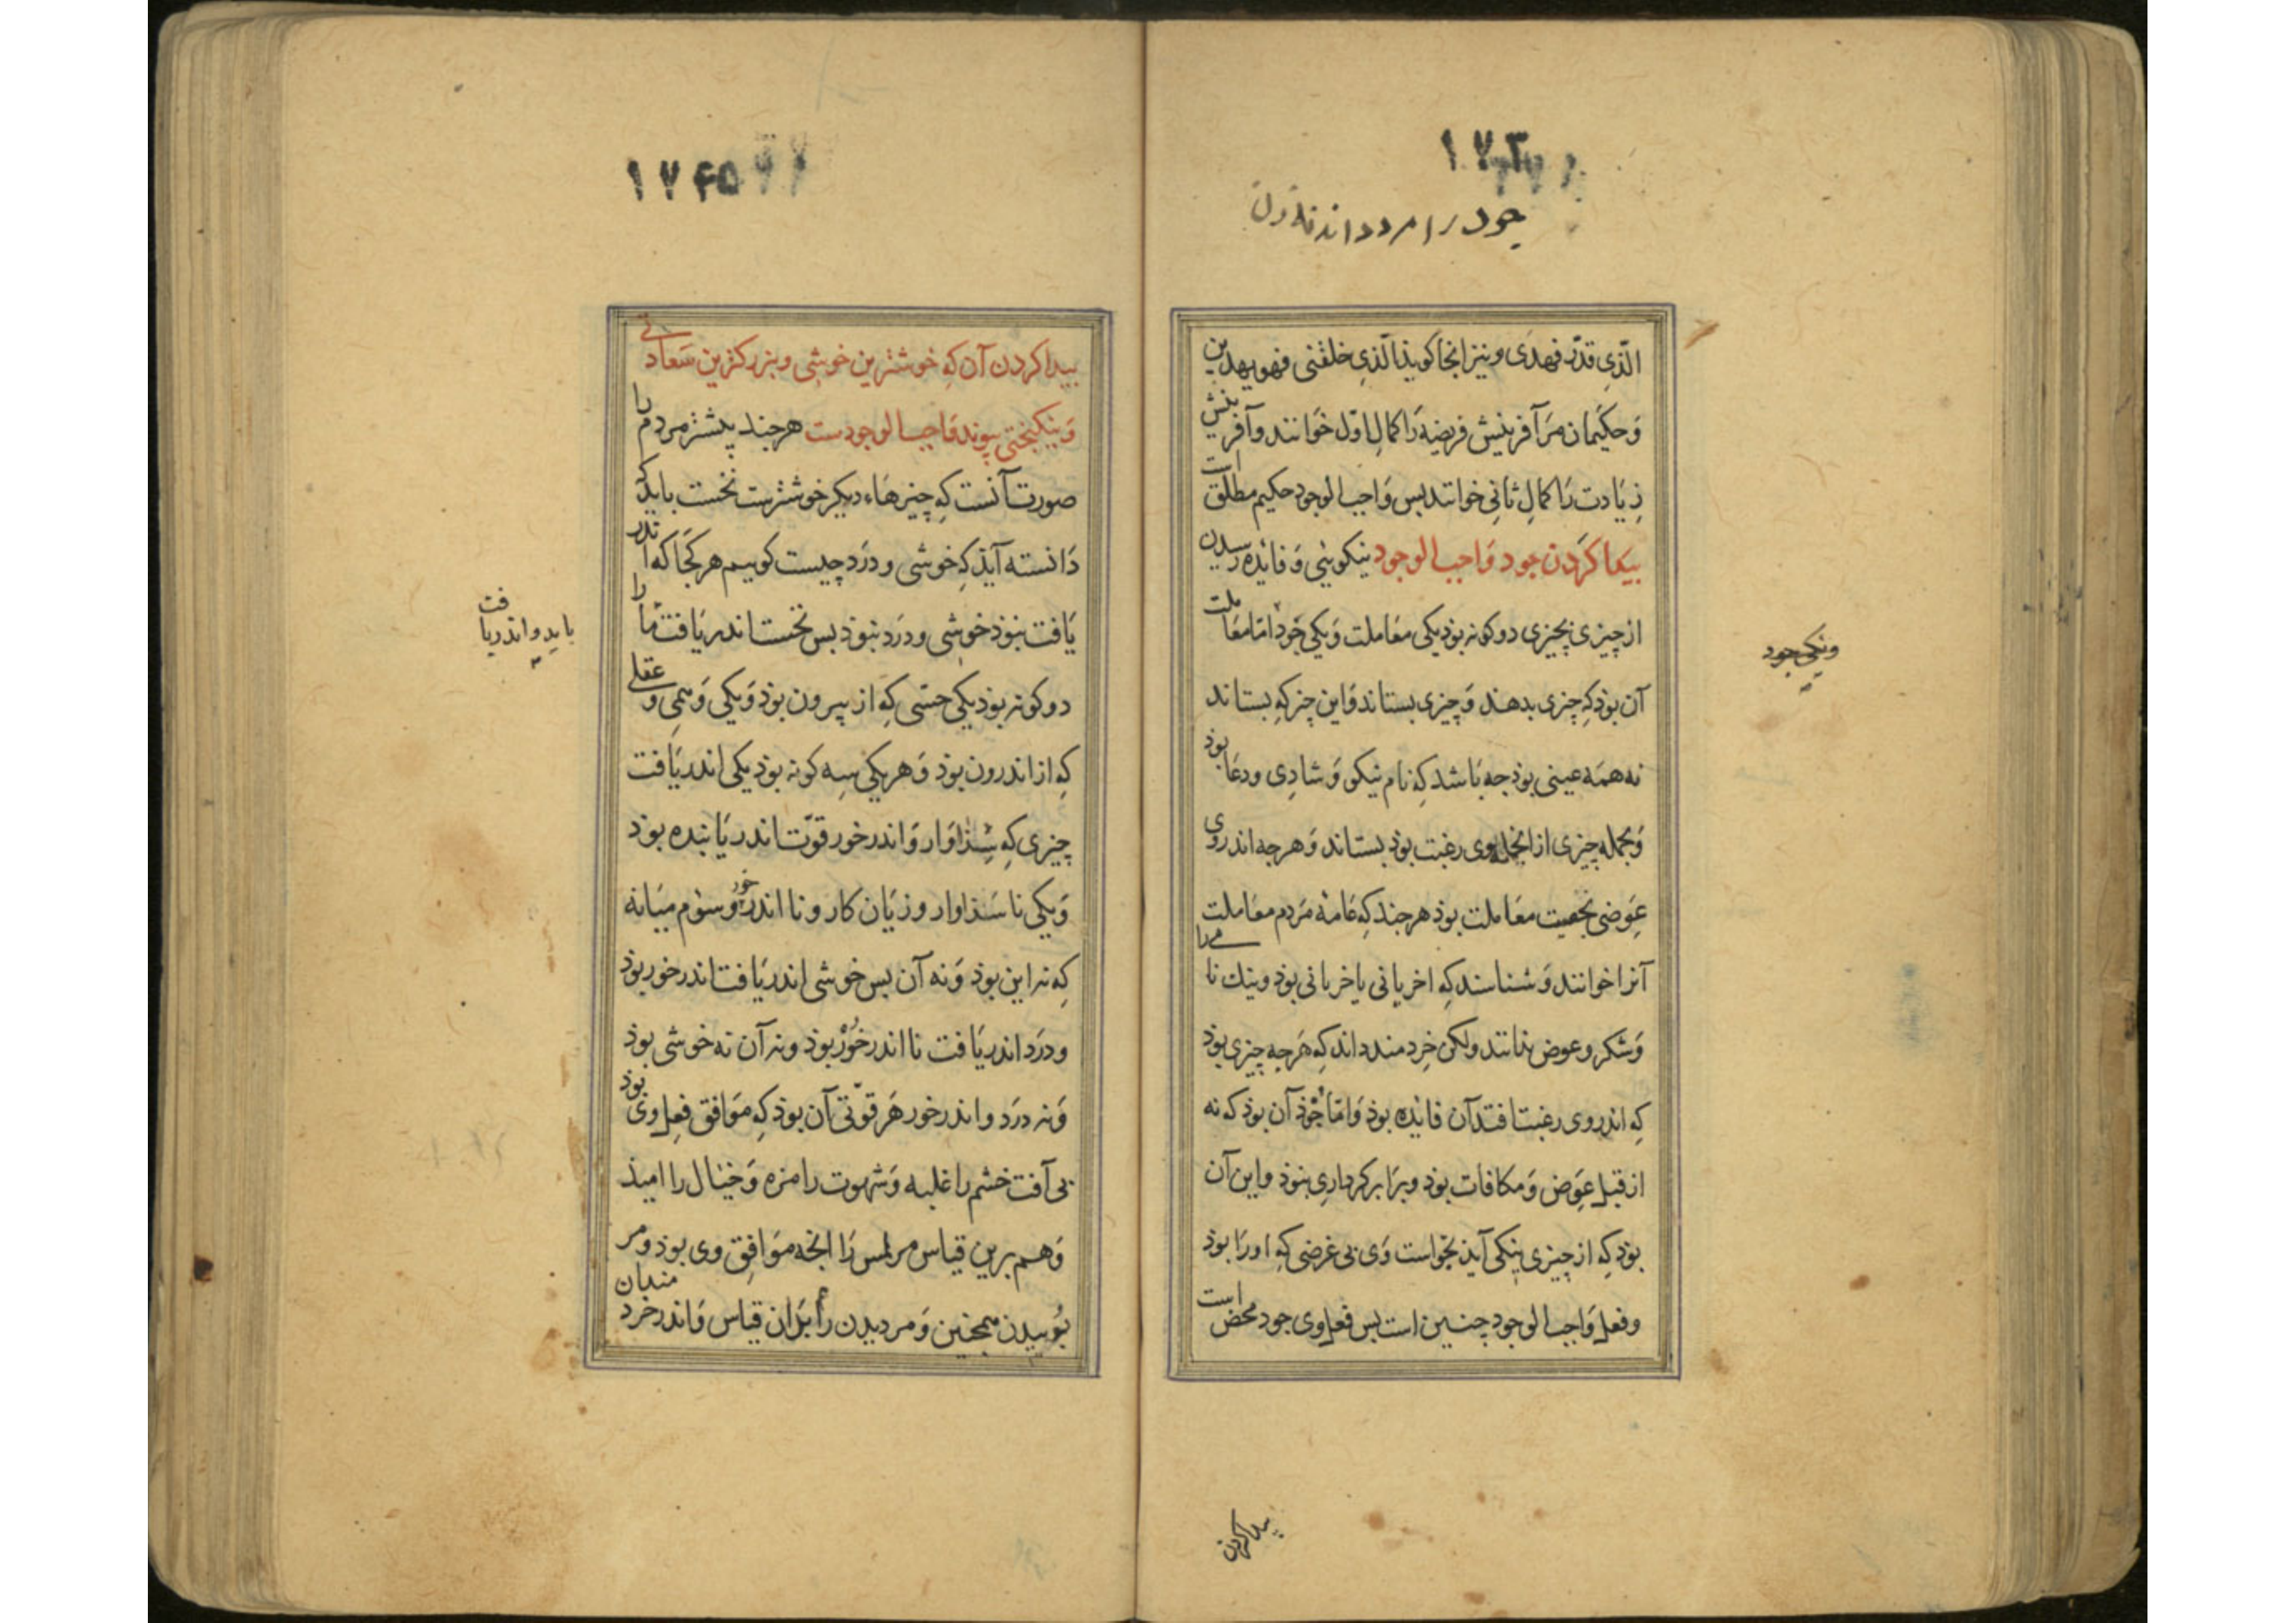 ۱۷۳
جود را مرد داند نه دل
الّذی قدّر فهدی و نیز انجا کویذ الّذی خلقنی فهو یهدین
وَحکیمان مَرآفرینش فریضه رَا کمالِ اوّل خوَانند وآفرینش
زِیَادت رَا کمالِ ثانی خوانند بس وَاجب الوجود حکیم مطلق است
بیدا کَردن جود وَاجب الوجود نیکویئی وَفائده رسیدن
از چیزی بچیزی دو کونه بوذ یکی معَاملت وَیکی جُوذ امّا معَاملت
آن بوذ کِه چیزی بدهند وَچیزی بستاند وَاین چیز کِه بستاند
نه همَه عینی بوذ جه بَاشد کِه نام نیکو وَشادِی ودعَا بوذ
وَبجمله چیزی از انجمله بوی رغبت بوذ بستاند وَهرجه اندروی
عِوَضی بحقیت معَاملت بوذ هرجند کِه عَامهٔ مَردم معَاملت
آنرا خوانند وَشناسند کِه اخریانی باخریانی بوذ ونیك نامی را
وَشکر وعوض ندانند ولکن خِردمند داند کِه هَرجه چیزی بوذ
کِه اندروی رغبت افتد آن فائده بوذ وَامّا جُوذ آن بوذ که نه
از قبل عِوَض وَمکافات بوذ وبرَابر کرداری نبوذ واین آن
بوذ کِه از چیزی نیکی آیذ بخواست وَی بی غرضی کِه اورَا بوذ
وفعل وَاجب الوجود چنین است بس فعل وی جود محض است
ویکی جود
پیدا کردن
۱۷۴۵
بیدا کردن آن کِه خوشترین خوشی وبزرکترین سَعادتی
وَنیکبختی پیوند وَاجب الوجودست هرجند پیشتر مردم را
صورت آنست کِه چیزهَاء دیکر خوشترست نخست بایذ کِه
دَانسته آیذ کِه خوشی ودرَد چیست کوییم هر کجَا که اندر
یَافت نبوذ خوشی ودرَد نبوذ بس نخست اندریَافت مَا را
دو کونه بوذ یکی حسّی کِه از بیرون بوذ وَیکی وَهمِی وعقلی
کِه از اندرون بوذ وَهر یکی سِه کونه بوذ یکی اندریَافت
چیزی کِه سِذاوَار وَاندرخور قوّت اندریَابنده بوذ
وَیکی ناسَذاوار وزیَان کار ونا اندرخور وسوُم میَانه
کِه نه این بوذ وَنه آن بس خوشی اندریَافت اندرخور بوذ
ودرَد اندریَافت نا اندرخوُر بوذ ونه آن نه خوشی بوذ
وَنه درَد واندرخور هَر قوّتی آن بوذ کِه موَافق فعِل وی بوذ
بی آفت خشم را غلبه وَشهوت را مزه وَخیَال را امیذ
وَهم برین قیاس مر لمس رَا انجه موَافِق وی بوذ ومر
بُوییدن همجنین وَمر دیدن را بَران قیاس وَاندر خردمندان
باید و اندریافت